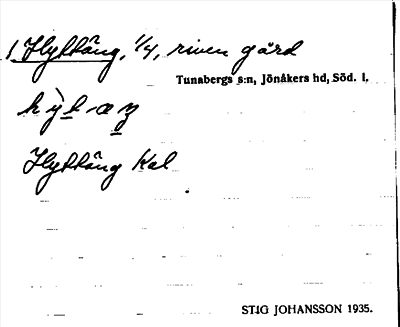 1 Hyttäng, 1/4, riven gård
Tunabergs s:n, Jönåkers hd, Söd. l.
Hyttäng Kal
STIG JOHANSSON 1935.